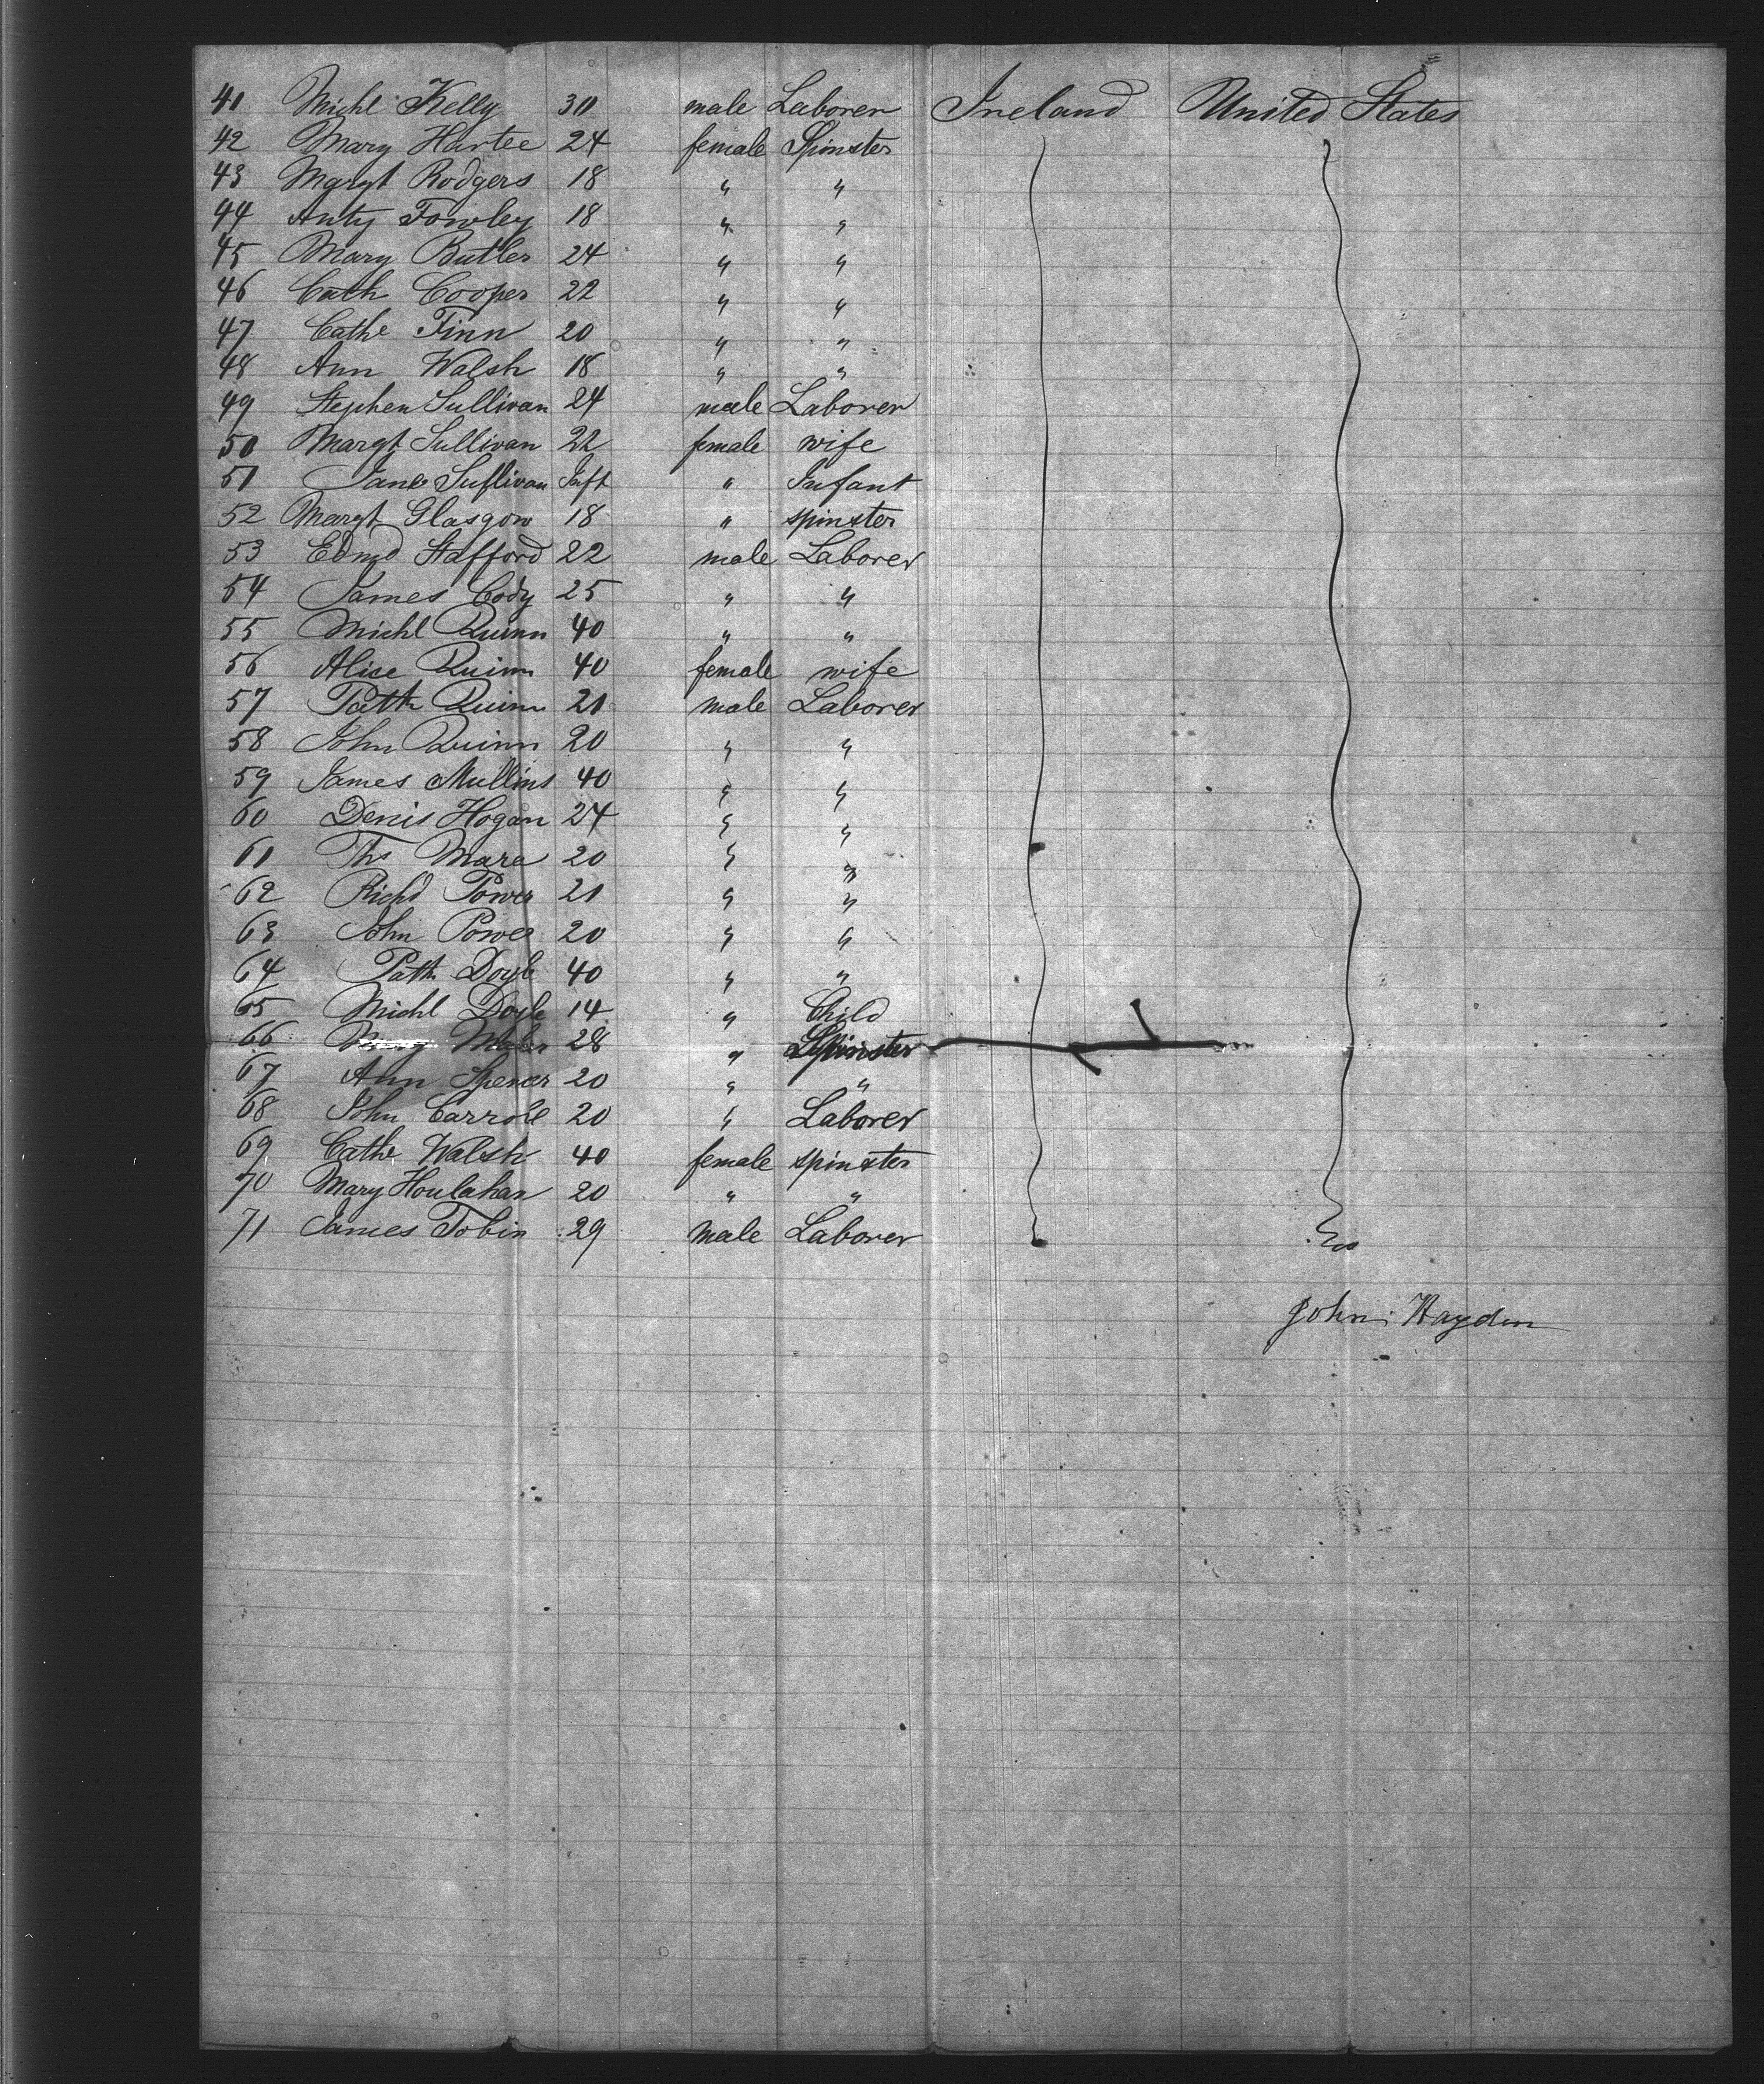 41 Michl Kelly 30 male Laborer Ireland United States
42 Mary Hartee 24 female Spinster
43 Margt Rodgers 18 " "
44 Anty Fowley 18 " "
45 Mary Butler 24 " "
46 Cath Cooper 22 " "
47 Cathe Finn 20 " "
48 Ann Walsh 18 " "
49 Stephen Sullivan 24 male Laborer
50 Margt Sullivan 22 female wife
51 Jane Sullivan Inft " Infant
52 Margt Glasgow 18 " spinster
53 Edmd Stafford 22 male Laborer
54 James Cody 25 " "
55 Michl Quinn 40 " "
56 Alice Quinn 40 female wife
57 Patk Quinn 21 male Laborer
58 John Quinn 20 " "
59 James Mullins 40 " "
60 Denis Hogan 24 " "
61 Ths Mara 20 " "
62 Richd Power 21 " "
63 John Power 20 " "
64 Patk Doyle 40 " "
65 Michl Doyle 14 " Child
66 28 " Spinster
67 Ann Spencer 20 " "
68 John Carroll 20 " Laborer
69 Cathe Walsh 40 female spinster
70 Mary Houlahan 20 " "
71 James Tobin 29 male Laborer
John Hayden